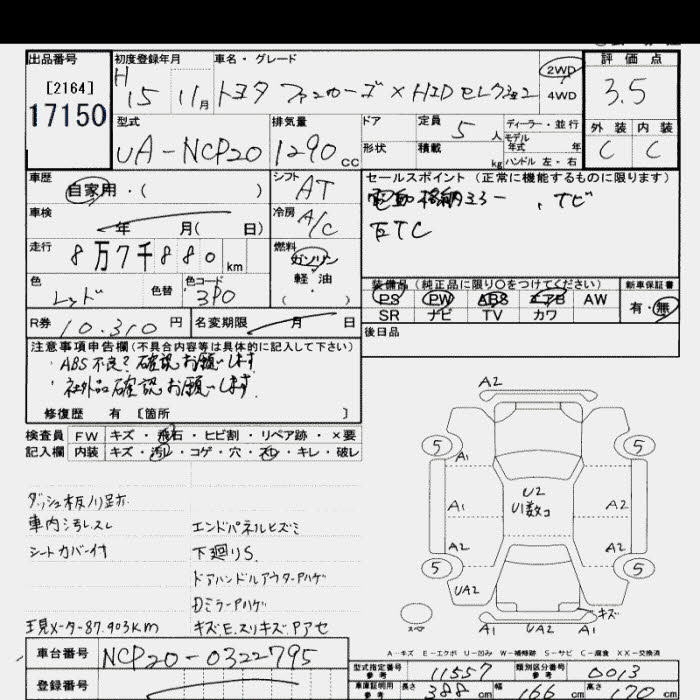 出品番号
[2164]
17150
初度登録年月
H15 11月
車名・グレード
トヨタ ファンカーゴ × HIDセレクション
2WD
4WD
評価点
3.5
型式
UA-NCP20
排気量
1290 cc
ドア
形状
定員 5人
積載 kg
ディーラー・並行
モデル年式 年
ハンドル 左・右
外装 内装
C C
車歴
自家用・( )
シフト
AT
セールスポイント(正常に機能するものに限ります)
電動格納ミラー、ナビ
ETC
車検
年 月( 日)
冷房
A/C
走行
8万7千880 km
燃料
ガソリン
軽油
( )
色
レッド
色替
色コード
3P0
装備品(純正品に限り○をつけてください)
PS PW ABS エアB AW
SR ナビ TV カワ
新車保証書
有・無
R券 10.310円
名変期限 月 日
後日品
注意事項申告欄(不具合内容等は具体的に記入して下さい)
・ABS不良?確認お願いします
・社外品確認お願いします
修復歴 有 [箇所 ]
検査員
記入欄
FW キズ・飛石・ヒビ割・リペア跡・×要
内装 キズ・汚レ・コゲ・穴・スレ・キレ・破レ
ダッシュ板ノリ跡
車内汚レスレ
シートカバー付
エンドパネルヒズミ
下廻りS
ドアハンドルアウターPハゲ
DミラーPハゲ
現メーター87.903km
キズ.E.スリキズ.Pアセ
A2
5
5
A1
U2
U1数コ
A1
A2
A2
A2
5
5
UA2
キズ
A1
UA2
A1
A-キズ E-エクボ U-凹み W-補修跡 S-サビ C-腐食 XX-交換済
車台番号
NCP20-0322795
登録番号
型式指定番号
参考
11557
類別区分番号
参考
0013
車庫証明用
参考
長さ 388 cm
幅 166 cm
高さ 170 cm